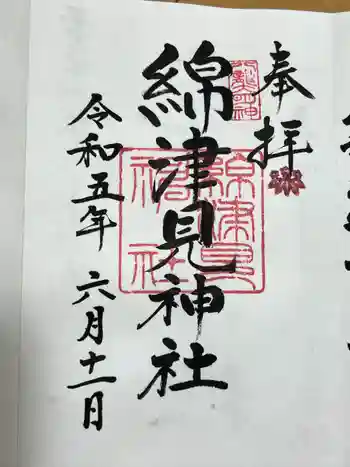 奉拝
綿津見神社
令和五年 六月十一日
綿津見
神社